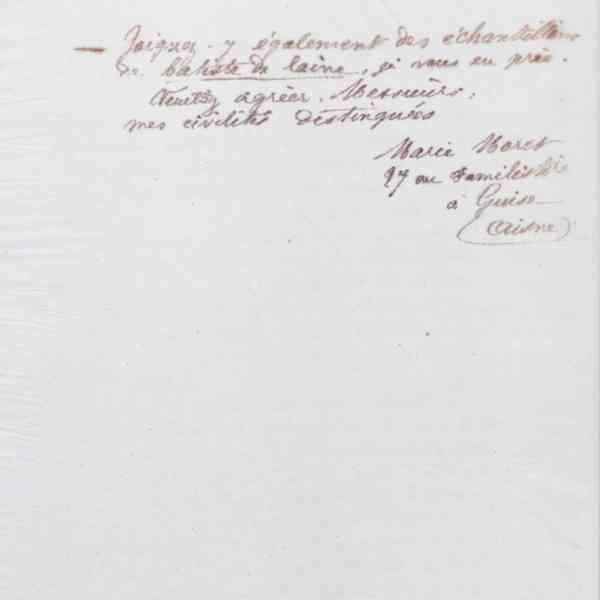 — Joignez-y également des échantillons
de batiste de laine, je vous en prie.
Veuillez agréer, Messieurs,
mes civilités distinguées
Marie Moret
97 au Familistère
à Guise
(Aisne)